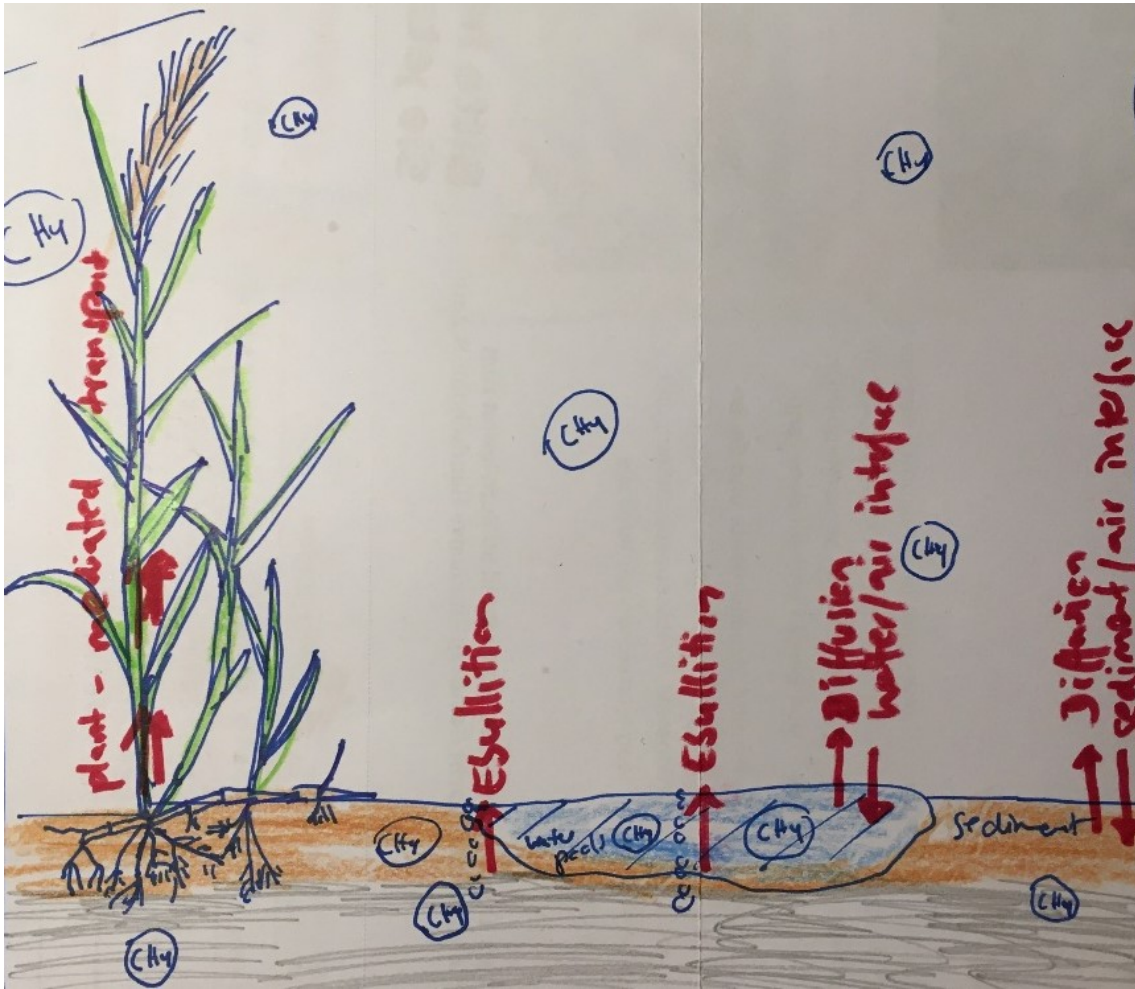 CH4
CH4
CH4
plant-mediated transport
CH4
CH4
Ebullition
Ebullition
Diffusion
water/air interface
Diffusion
sediment/air interface
CH4
water
CH4
CH4
sediment
CH4
CH4
CH4